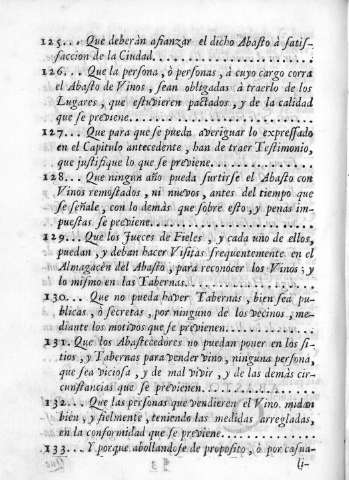 125... Que deberàn afianzar el dicho Abasto à satis-
faccion de la Ciudad.....................
126... Que la persona, ò personas, à cuyo cargo corra
el Abasto de Vinos, sean obligadas à traerlo de los
Lugares, que estuvieren pactados, y de la calidad
que se previene.........................
127... Que para que se pueda averiguar lo expressado
en el Capitulo antecedente, han de traer Testimonio,
que justifique lo que se previene.............
128... Que ningun año pueda surtirse el Abasto con
Vinos remostados, ni nuevos, antes del tiempo que
se señale, con lo demàs que sobre esto, y penas im-
puestas se previene.......................
129... Que los Jueces de Fieles, y cada uno de ellos,
puedan, y deban hacer Visitas frequentemente en el
Almagacèn del Abasto, para reconocer los Vinos; y
lo mismo en las Tabernas...................
130... Que no pueda haver Tabernas, bien sea pu-
blicas, ò secretas, por ninguno de los vecinos, me-
diante los motivos que se previenen...........
131. Que los Abastecedores no puedan poner en los si-
tios, y Tabernas para vender vino, ninguna persona,
que sea viciosa, y de mal vivir, y de las demàs cir-
cunstancias que se previenen...............
132... Que las personas que vendieren el Vino midan
bien, y fielmente, teniendo las medidas arregladas,
en la conformidad que se previene............
133... Y porque abollandose de proposito, ò por casua-
li-